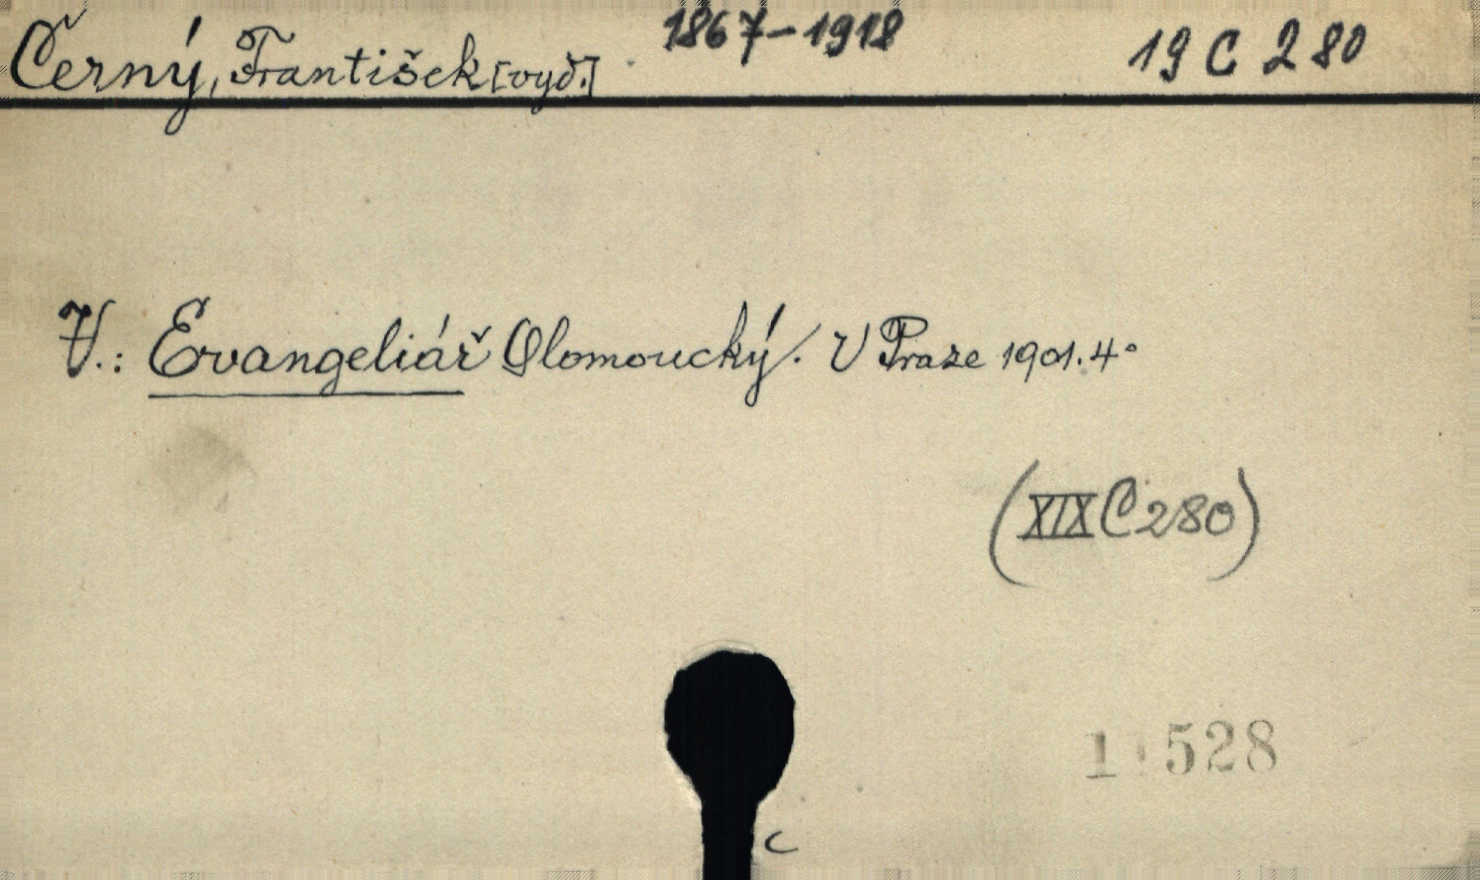 Černý, František [vyd.] 1867-1918 19 C 280
V.: Evangeliář Olomoucký. V Praze 1901. 4°
(XIX C 280)
528
c